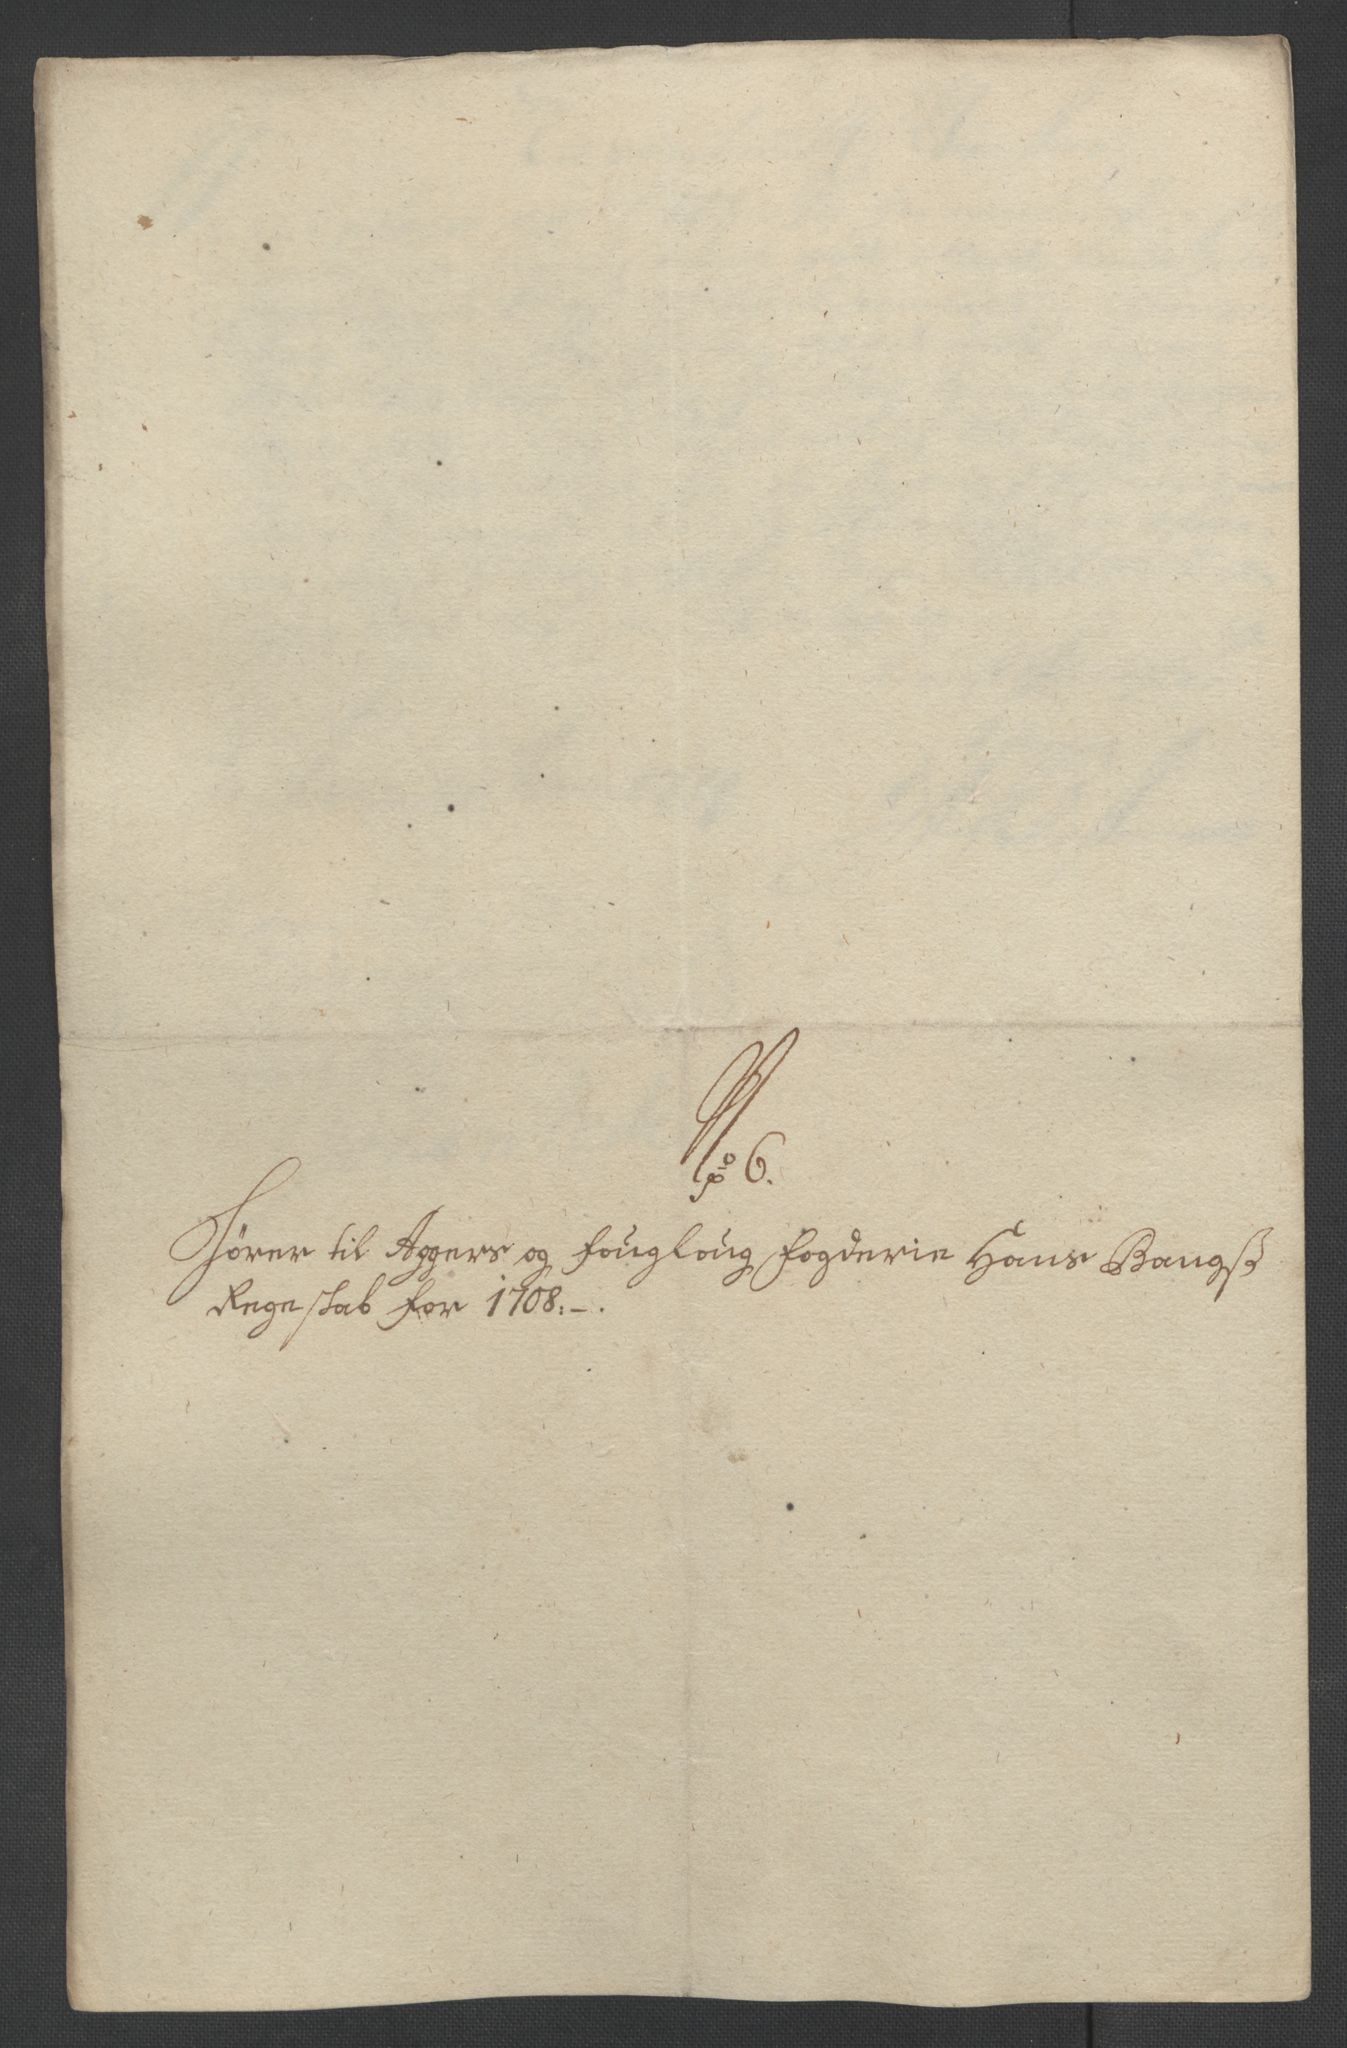 No 6.
Hörer til Aggers og fougloug fogderie Hans Bangß
Regeskab for 1708:-.